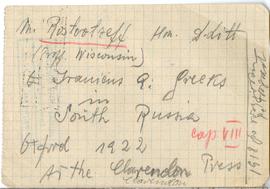 M. Rostovtzeff Hon. D. Litt
(Prof. Wisconsin)
Iranians a. Greeks
in
South Russia
cap VIII
Oxford 1922
At the Clarendon Press
Clarendon